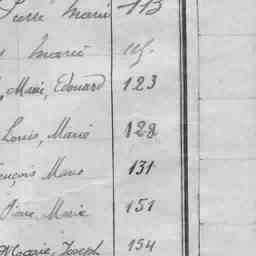 Pierre Marie 113
Marie 115.
, Marie, Edouard 123
Louis, Marie 128
François Marie 131
Pierre, Marie 151
Marie, Joseph 154